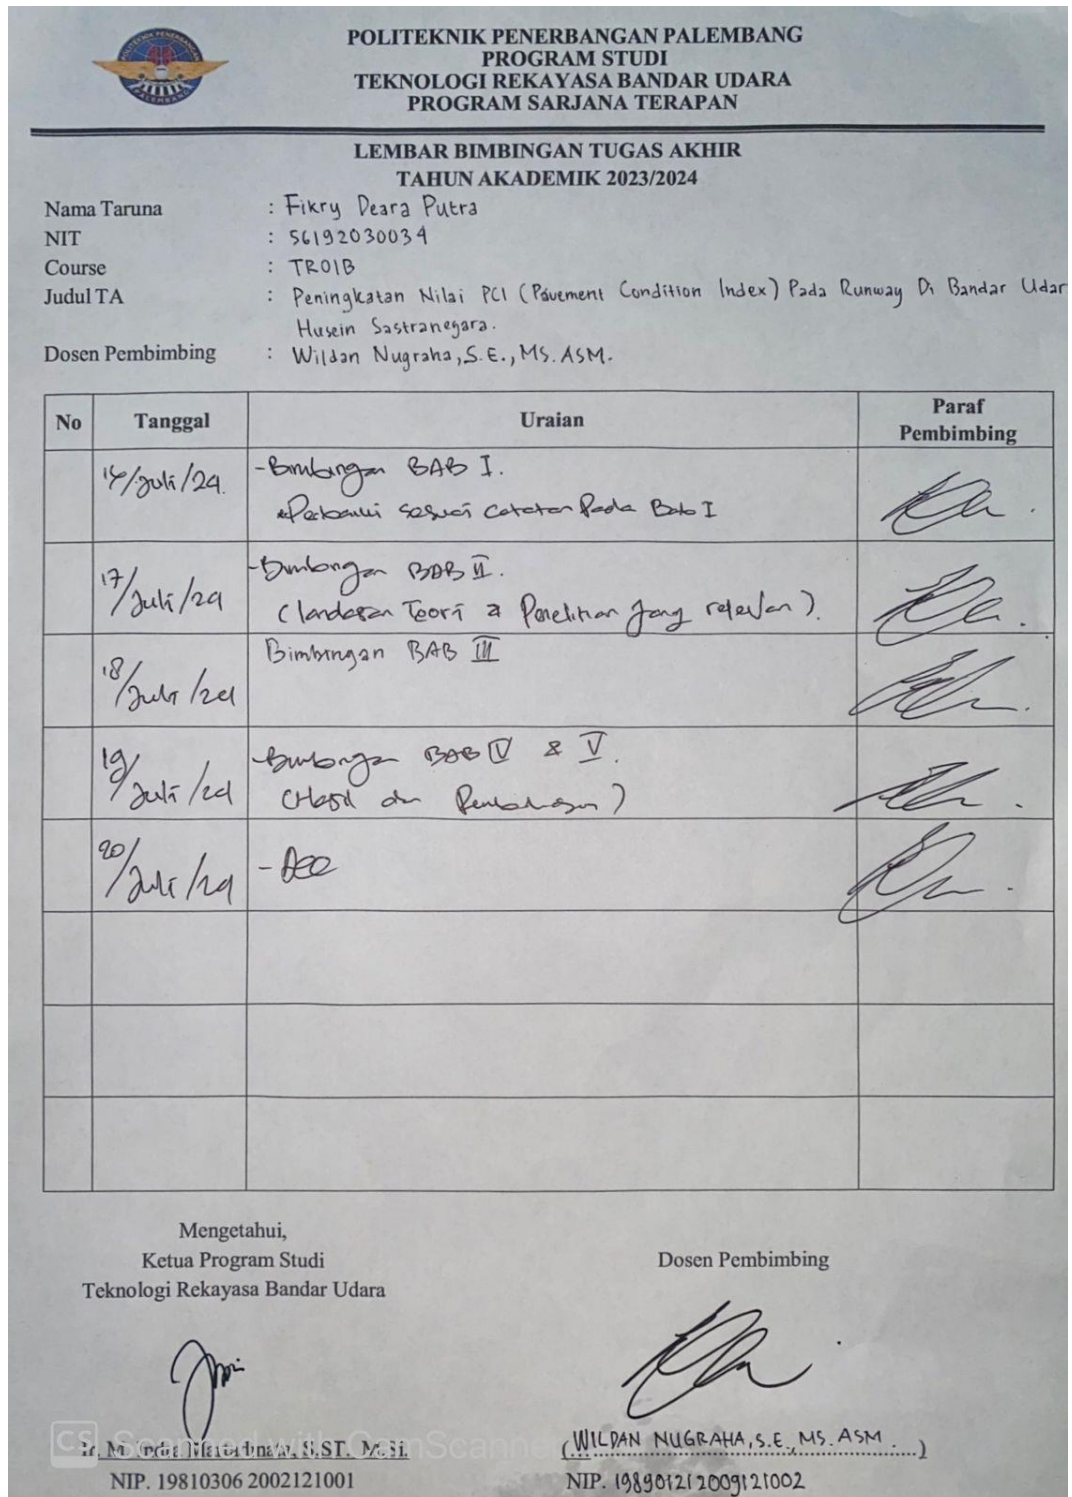 POLITEKNIK PENERBANGAN PALEMBANG
PROGRAM STUDI
TEKNOLOGI REKAYASA BANDAR UDARA
PROGRAM SARJANA TERAPAN
LEMBAR BIMBINGAN TUGAS AKHIR
TAHUN AKADEMIK 2023/2024
Nama Taruna : Fikry Deara Putra
NIT : 56192030034
Course : TRO1B
Judul TA : Peningkatan Nilai PCI (Pavement Condition Index) Pada Runway Di Bandar Udar
Husein Sastranegara.
Dosen Pembimbing : Wildan Nugraha, S.E., MS. ASM.
No Tanggal Uraian Paraf Pembimbing
/Juli/24. -Bimbingan BAB I.
sesuai catatan Pada Bab I
17/Juli/24 -Bimbingan BAB II.
(landasan Teori & Penelitian yang relevan).
18/Juli/24 Bimbingan BAB III
19/Juli/24 -Bimbingan BAB IV & V.
(Hasil dan Pembahasan)
20/Juli/24 - Acc
Mengetahui,
Ketua Program Studi
Teknologi Rekayasa Bandar Udara
Dosen Pembimbing
CS Scanned with CamScanner
Ir. M. Indra Martadinata, S.ST., M.Si.
NIP. 19810306 2002121001
(WILDAN NUGRAHA, S.E., MS. ASM.)
NIP. 198901212009121002